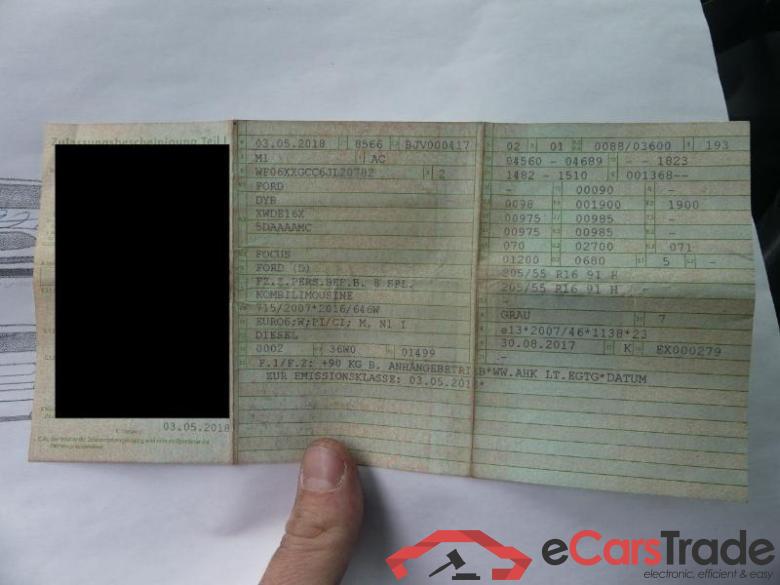 Zulassungsbescheinigung Teil I
03.05.2018
03.05.2018 8566 BJV000417
M1 AC
2
FORD
DYB
XWDE16X
5DAAAAMC
FOCUS
FORD (D)
FZ.Z.PERS.BEF.B. 8 SPL.
KOMBILIMOUSINE
715/2007*2016/646W
EURO6;W;PI/CI; M, N1 I
DIESEL
0002 36W0 01499
F.1/F.2: +90 KG B. ANHÄNGEBETRIEB*WW.AHK LT.EGTG*DATUM
ZUR EMISSIONSKLASSE: 03.05.2018*
02 01 0088/03600 193
04560 - 04689 - - 1823
1482 - 1510 001368--
- 00090 -
0098 001900 1900
00975 00985 -
00975 00985 -
070 02700 071
01200 0680 5 -
205/55 R16 91 H
205/55 R16 91 H
-
GRAU 7
e13*2007/46*1138*23
30.08.2017 K EX000279
-
eCarsTrade
electronic, efficient & easy